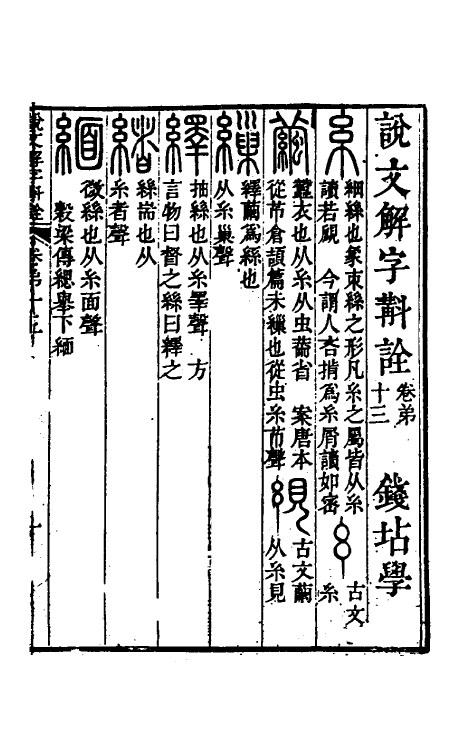 說文解字斠詮 卷第十三 錢坫學
糸 細絲也象束絲之形凡糸之屬皆从糸
讀若覛 今謂人吝揹為糸屑讀如密 古文糸
繭 蠶衣也从糸从虫黹省 案唐本
從芇倉頡篇未繅也從虫糸芇聲 古文繭
从糸見
繅 繹繭為絲也
从糸巢聲
繹 抽絲也从糸睪聲 方
言物曰督之絲曰繹之
緒 絲耑也从
糸者聲
緬 微絲也从糸面聲
穀梁傳緦舉下緬
說文解字斠詮 卷弟十三